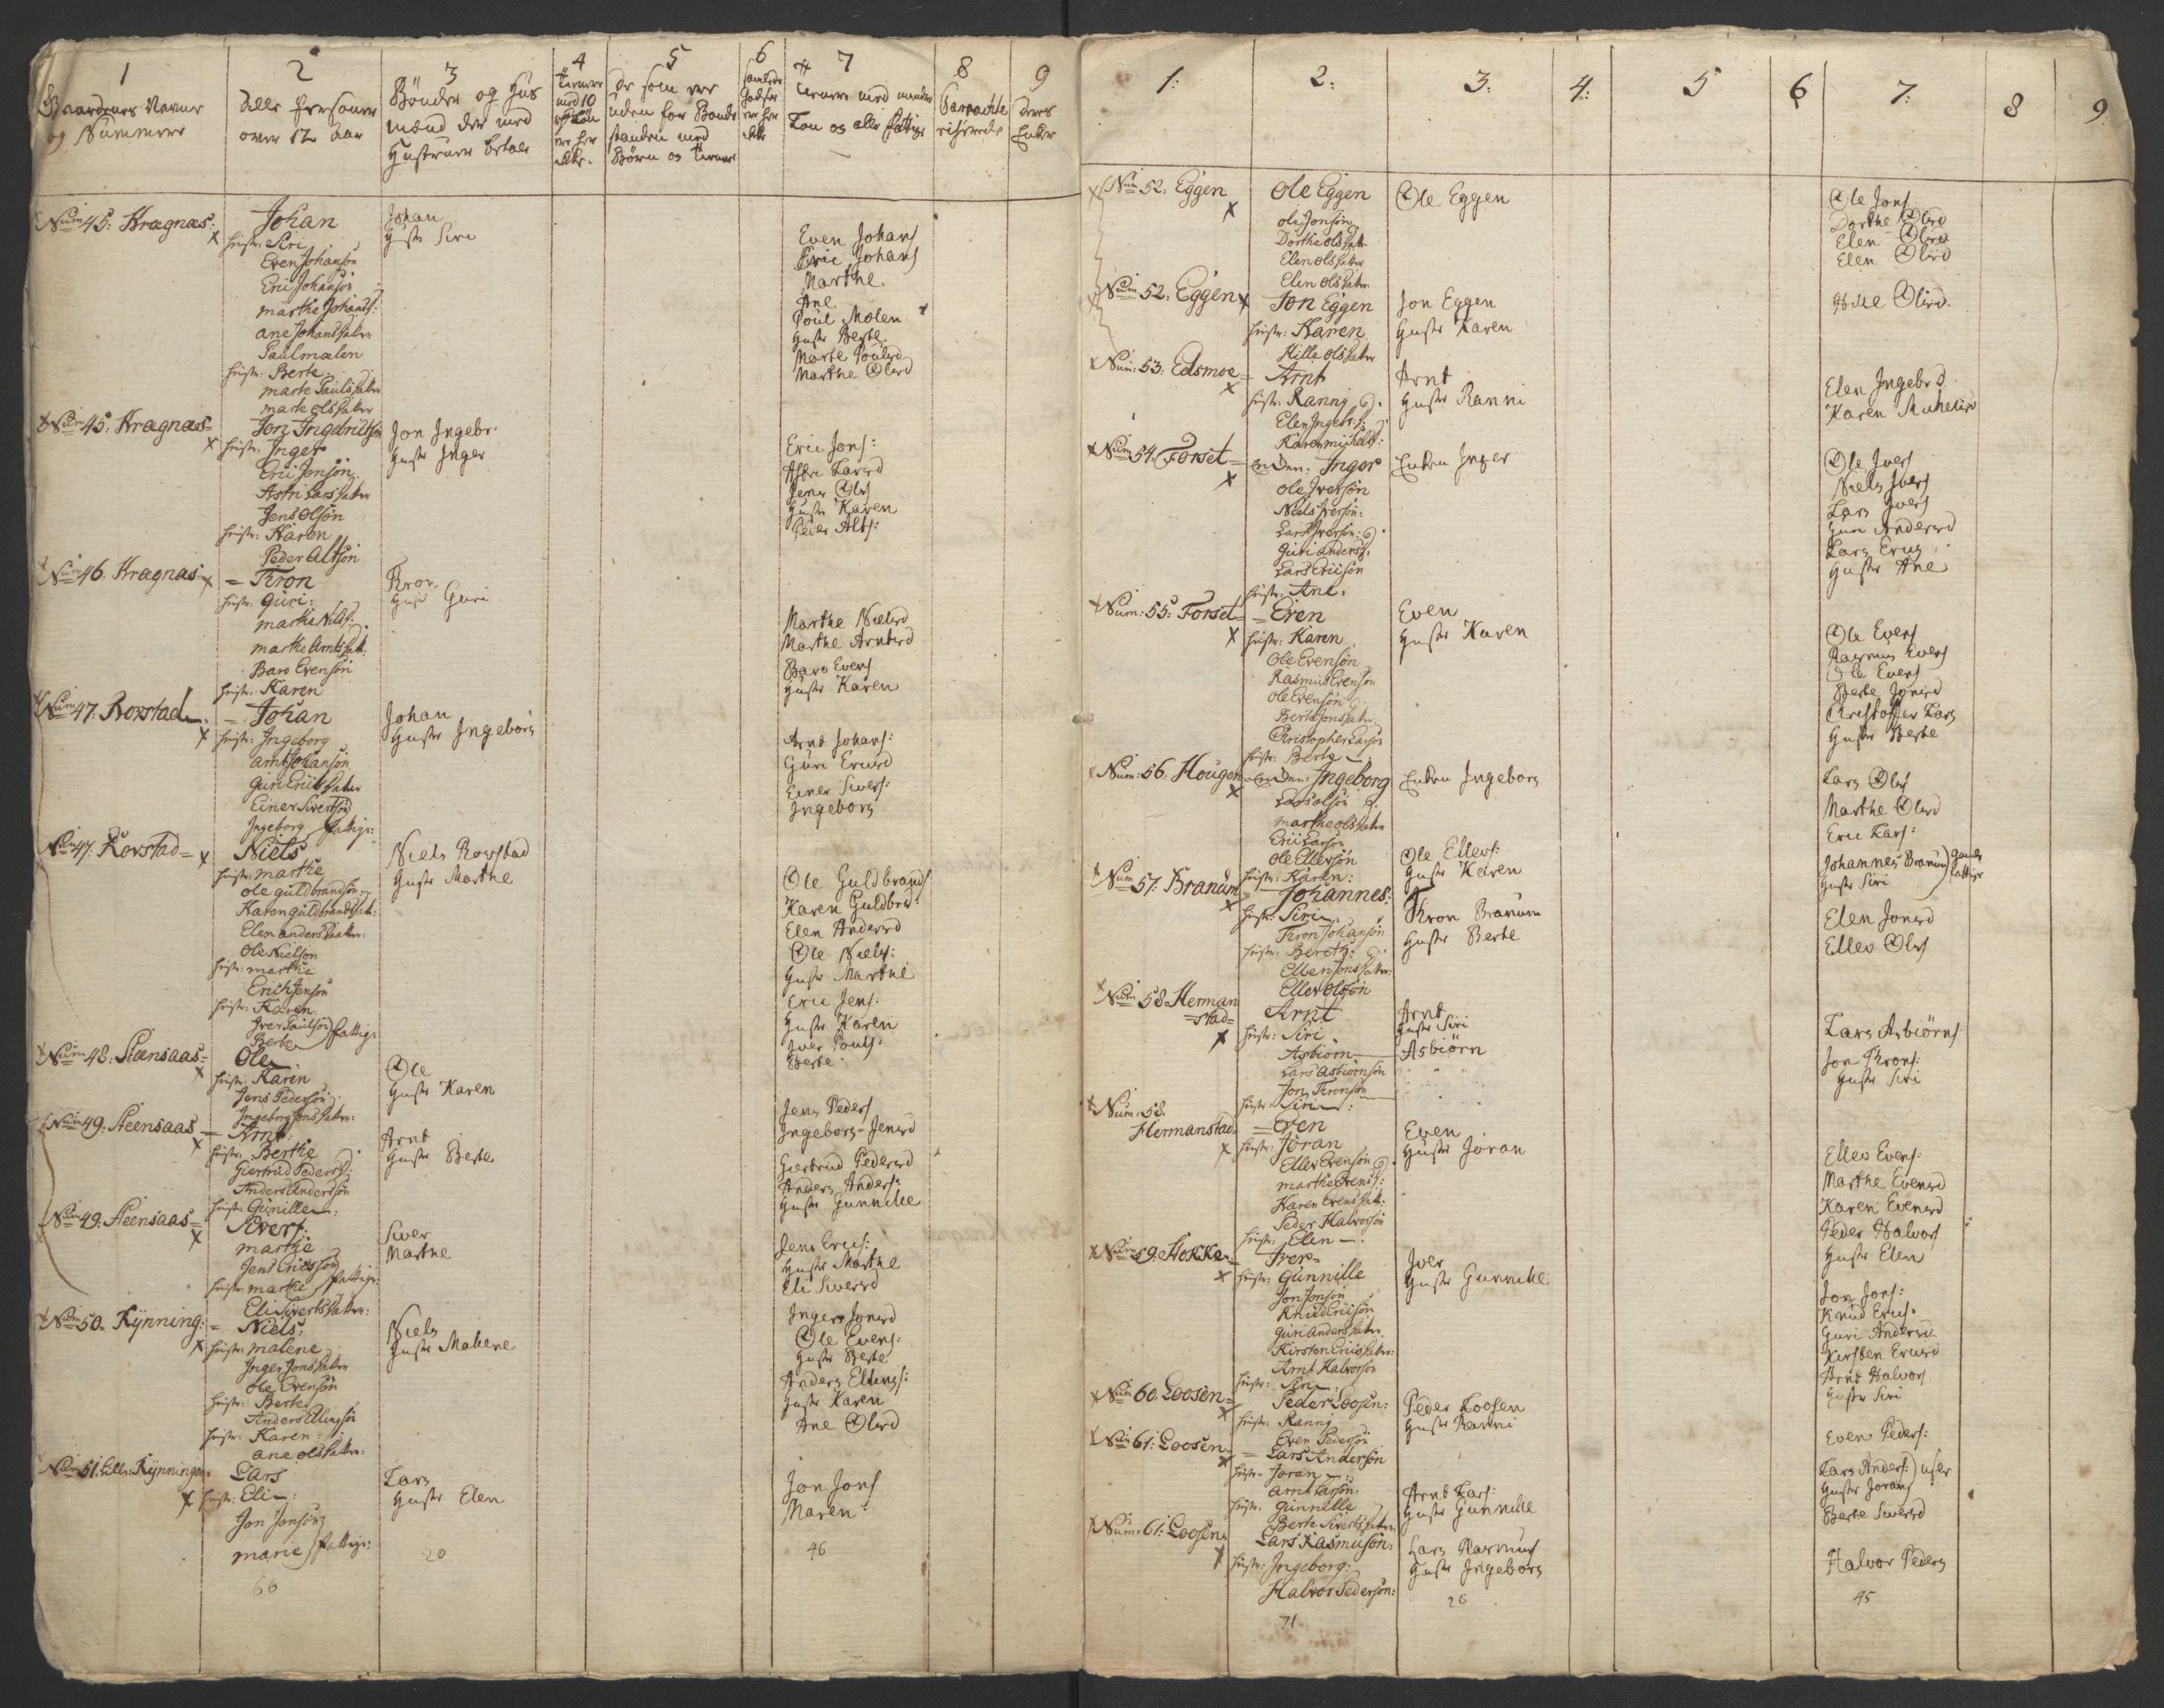 1
2
3
4
5
6
7
8
9
Gaardenes Navne
og Nummere
Alle Personer
over 12 Aar
Bønder og Huus
mænd der med
Hustruer betale
med 10
er her
De som ere
uden for Bonde
standen med
Børn og
er her
med
og alle fattige
Num 45: Kragnæs:
Johan
hustr: Siri
Even Johansøn
Eric Johansøn
marthe Johansd:
ane Johansdatter
Paul mælen
hustr: Berte
marte Paulsdatter
marte olsdatter
Johan
Hustr Siri
Even Johans
Eric Johans
Marthe
Ane
Poul Mølen
Hustr Berte
Marte Poulsd
Marthe Olsd
Num 45: Kragnæs
Jon Ingebrictsøn
hustr: Inger
Eric Jonsøn
Astri Larsdatter
Jens Olsøn
hustr: Karen
Peder Altsøn
Jon Ingebr:
Hustr Inger
Eric Jons:
Astri Larsd
Jens Ols
Hustr Karen
Peder Alts:
Num 46. Kragnæs
= Tron
hustr: Guri:
marthe Nilsd:
marthe Arntsdatt:
Baro Evensøn
hustr: Karen
Tron
Hustr Guri
Marthe Nielsd
Marthe Arntsd
Baro Evens
Hustr Karen
Num 47: Rovstad
= Johan
hustr: Ingeborg
arnt Johansøn
Guri Ericsdatter
Einer Sivertsøn
Ingeborg fattige:
Johan
Hustr Ingeborg
Arnt Johans:
Guri Ericsd
Einer Sivers:
Ingeborg
Num 47: Rovstad =
Niels
hustr: marthe
ole guldbrandsøn
Karen guldbrandsdatt:
Elen andersdatter:
Ole Nielsøn
hustr: marthe
Erich Jensøn
hustr: Karen
Iver Paulsøn
Berte fattige
Niels Rovstad
Hustr Marthe
Ole Guldbrands
Karen Guldbrd:
Elen Andersd
Ole Niels:
Hustr Marthe
Eric Jens:
Hustr Karen
Iver Pouls:
Berte
Num 48: Steensaas =
Ole
hustr: Karen
Jens Pedersøn
Ingeborg Jensdatter:
Ole
Hustr Karen
Jens Peders
Ingeborg Jensd
Num 49. Steensaas
= Arnt:
hustr: Berthe
Giertrud Pedersd:
Anders Anderssøn
hustr: Gunille
Arnt
Hustr Berte
Giertrud Pedersd
Anders Anders:
Hustr Gunnille
Num 49: Steensaas =
Sivert
marthe
Jens Ericssøn
hustr: marthe fattige:
Eli Sivertsdatter:
Siver
Marthe
Jens Erics:
Hustr Marthe
Eli Siversd
Num 50. Kÿnning:
= Niels:
hustr: malene
Inger Jonsdatter
Ole Evensøn
hustr: Berte
Anders Ellingsøn
hustr: Karen:
ane olsdatter:
Niels
Hustr Malene
Inger Jonsd
Ole Evens:
Hustr Berte
Anders Ellings:
Hustr Karen
Ane Olsd
Num 51: Lille Kÿnningen
Lars
hustr: Eli
Jon Jonsøn
marie fattige:
Lars
Hustr Elen
Jon Jons
Maren
66
20
46
1:
2:
3:
4:
5
6
7:
8
9.
Num 52: Eggen
Ole Eggen
ole Jonsøn
Dorthe olsdatter
Elen olsdatter
Elen olsdatter
Ole Eggen
Ole Jons
Dorthe Olsd
Elen Olsd
Elen Olsd
Num 52: Eggen
Jon Eggen
hustr: Karen
Kille olsdatter
Jon Eggen
Hustr Karen
Olsd.
Num: 53: Edsmoe =
Arnt
hustr: Ranni
Elen Ingebr:
Karen michelsd:
Arnt
Hustr Ranni
Elen Ingebr d
Karen Michelsd
Num 54: Forset =
enken: Inger
ole Iversøn
Niels Iversøn:
Lars Iversøn:
Guri andersd:
Lars Ericsøn
hustr: Ane.
Enken Inger
Ole Ivers
Niels Ivers
Lars Ivers
Guri Andersd
Lars Erics
Hustr Ane
Num: 55: Forset =
= Even
hustr: Karen
Ole Evensøn
Rasmus Evensøn
ole Evensøn
Berte Jonsdatter
Christopher Larsøn
hustr: Berte
Even
Hustr Karen
Ole Evens
Rasmus Evens
Ole Evens
Berte Jonsd
Christoffer Lars
Hustr Berte
Num: 56: Hougen
enken: Ingeborg
Lars olsøn
marthe olsdatter
Eric Larsøn
Ole Ellevsøn
hustr: Karen:
Enken Ingeborg
Ole Ellevs:
Hustr Karen
Lars Ols
Marthe Olsd
Eric Lars:
Num 57: Branum
Johannes:
hustr: Siri
Tron Johansøn
hustr: Bereth:
Ellen Jonsdatter:
Ellev olssøn
Tron Branum
Hustr Berte
Johannes Branum
Hustr Siri
Elen Jonsd
Ellev Ols
Num 58 Herman
=stad=
Arnt
hustr: Siri.
Asbiørn
Lars Asbiørnsøn
Jon Tronsøn
hustr: Siri:
Arnt
Hustr Siri
Asbiørn
Lars Asbiørns
Jon Trons:
Hustr Siri
Num: 58.
Hermanstad
= Even
hustr: Joran
Ellev Evensøn
marthe Evensd:
Karen Evensdatt:
Peder Halvorsøn
hustr: Elen
Even
Hustr Joran
Ellev Evens:
Marthe Evensd
Karen Evensd
Peder Halvors
Hustr Elen
Num 59: Stokke
Iver
hustr: Gunnille
Jon Jonsøn
Knud Ericsøn
Guri Andersdatter
Kirsten Ericsdatter:
Arnt Halvorsøn
hustr: Siri
Iver
Hustr Gunnille
Jon Jons:
Knud Erics.
Guri Andersd
Kirsten Ericsd
Arnt Halvors
Hustr Siri
Num 60. Loosen =
Peder Loosen:
hustr: Ranni
Even Pedersøn
Peder Loosen
Hustr Ranni
Even Peders:
Num 61: Loosen
= Lars Andersøn
hustr: Joran
arnt Larsøn:
hustr: Gunnille
Berte Sivertsdatter
Arnt Lars:
Hustr Gunnille
Lars Anders:
Hustr Joran
Berte Siversd
Num: 61: Loosen
Lars Rasmusøn:
hustr: Ingeborg:
Halvor Pedersøn:
Lars Rasmus
Hustr Ingeborg
Halvor Peders
71
26
45